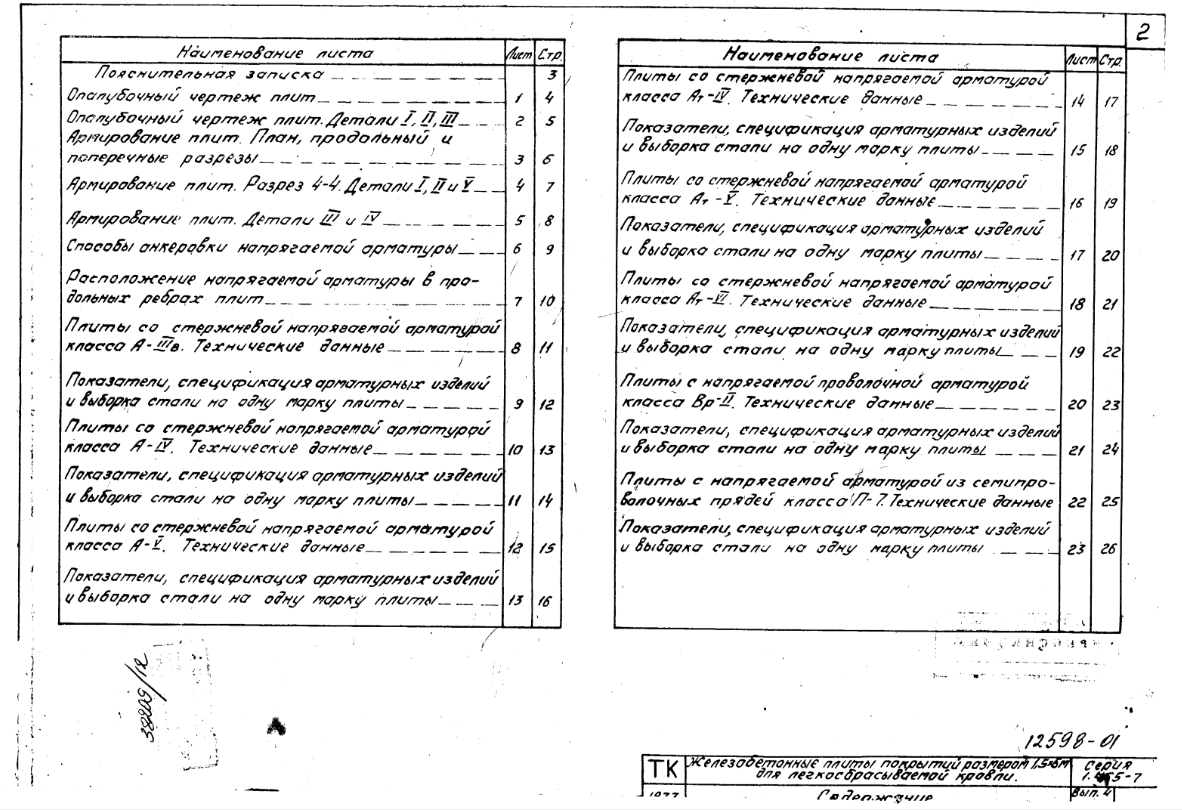 2
Наименование листа Лист Стр.
Пояснительная записка 3
Опалубочный чертеж плит 1 4
Опалубочный чертеж плит. Детали I, II, III 2 5
Армирование плит. План, продольный и
поперечные разрезы 3 6
Армирование плит. Разрез 4-4. Детали I, II и V 4 7
Армирование плит. Детали III и IV 5 8
Способы анкеровки напрягаемой арматуры 6 9
Расположение напрягаемой арматуры в про-
дольных ребрах плит 7 10
Плиты со стержневой напрягаемой арматурой
класса А-IIIв. Технические данные 8 11
Показатели, спецификация арматурных изделий
и выборка стали на одну марку плиты 9 12
Плиты со стержневой напрягаемой арматурой
класса А-IV. Технические данные 10 13
Показатели, спецификация арматурных изделий
и выборка стали на одну марку плиты 11 14
Плиты со стержневой напрягаемой арматурой
класса А-V. Технические данные 12 15
Показатели, спецификация арматурных изделий
и выборка стали на одну марку плиты 13 16
Наименование листа Лист Стр.
Плиты со стержневой напрягаемой арматурой
класса Ат-IV. Технические данные 14 17
Показатели, спецификация арматурных изделий
и выборка стали на одну марку плиты 15 18
Плиты со стержневой напрягаемой арматурой
класса Ат-V. Технические данные 16 19
Показатели, спецификация арматурных изделий
и выборка стали на одну марку плиты 17 20
Плиты со стержневой напрягаемой арматурой
класса Ат-VI. Технические данные 18 21
Показатели, спецификация арматурных изделий
и выборка стали на одну марку плиты 19 22
Плиты с напрягаемой проволочной арматурой
класса Вр-II. Технические данные 20 23
Показатели, спецификация арматурных изделий
и выборка стали на одну марку плиты 21 24
Плиты с напрягаемой арматурой из семипро-
волочных прядей класса П-7. Технические данные 22 25
Показатели, спецификация арматурных изделий
и выборка стали на одну марку плиты 23 26
38209/12
12598-01
ТК Железобетонные плиты покрытий размером 1.5×6м Серия
для легкосбрасываемой кровли.
1977 Содержание Вып. 4